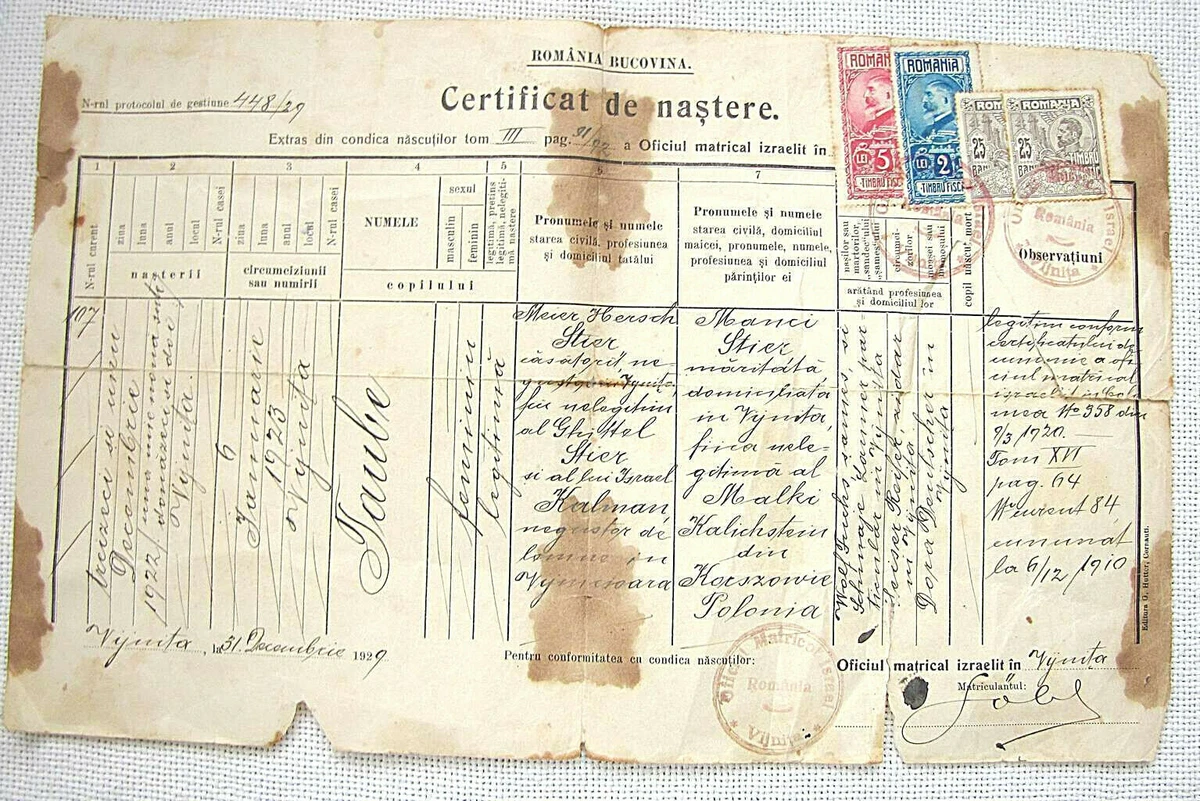 ROMÂNIA BUCOVINA.
N-rul protocolul de gestiune 448/29
Certificat de naştere.
Extras din condica născuţilor tom III pag. 91/92 a Oficiul matrical izraelit în
ROMANIA
LEI 5
TIMBRU FISCAL
ROMANIA
LEI 2
TIMBRU FISCAL
ROMANIA
25
BANI
ROMANIA
25
BANI
TIMBRU
1
2
3
4
5
6
7
N-rul curent
ziua
luna
anul
locul
N-rul casei
naşterii
ziua
luna
anul
locul
N-rul casei
circumciziunii
sau numirii
NUMELE
copilului
sexul
masculin
feminin
legitimă, pretins
legitimă, nelegiti-
mă naştere
Pronumele şi numele
starea civilă, profesiunea
şi domiciliul tatălui
Pronumele şi numele
starea civilă, domiciliul
maicei, pronumele, numele,
profesiunea şi domiciliul
părinţilor ei
naşilor sau
martorilor,
„sandec"ului
„sameş"ului
circumci-
zorilor
moaşei sau
mamoşului
arătând profesiunea
şi domiciliul lor
copil născut mort
Observaţiuni
107
treizeci şi unu
Decembrie
1922
una mie nouă sute
douăzeci şi doi
Vijniţa
6
Januarie
1923
Vijniţa
Taube
feminin
legitimă
Meier Hersch
Stier
căsătorit, ne-
gustor in Vijniţa,
fiu nelegitim
al Ghittel
Stier
şi al lui Israel
Kalman
negustor de
lemne in
Manci
Stier
măritată
domiciliată
in Vijniţa,
fiica nele-
gitimă al
Malki
Kalichstein
din
Polonia
Wolf Fuchs sameş, şi
in Vijniţa
Dora Deutscher in
Vijniţa
legitim conform
certificatului de
cununie a ofi-
ciul matrical
israelit in Colo-
mea No 958 din
9/3 1920.
Tom XVI
pag. 64
No curent 84
cununat
la 6/12 1910
Vijniţa, la 31 Decembrie 1929
Pentru conformitatea cu condica născuţilor:
Oficiul matrical izraelit în Vijniţa
Matriculantul:
Oficiul Matricol Israel
România
Vijniţa
România
Vijniţa
Israel
România
Vijniţa
Editura G. Hutter, Cernauti.